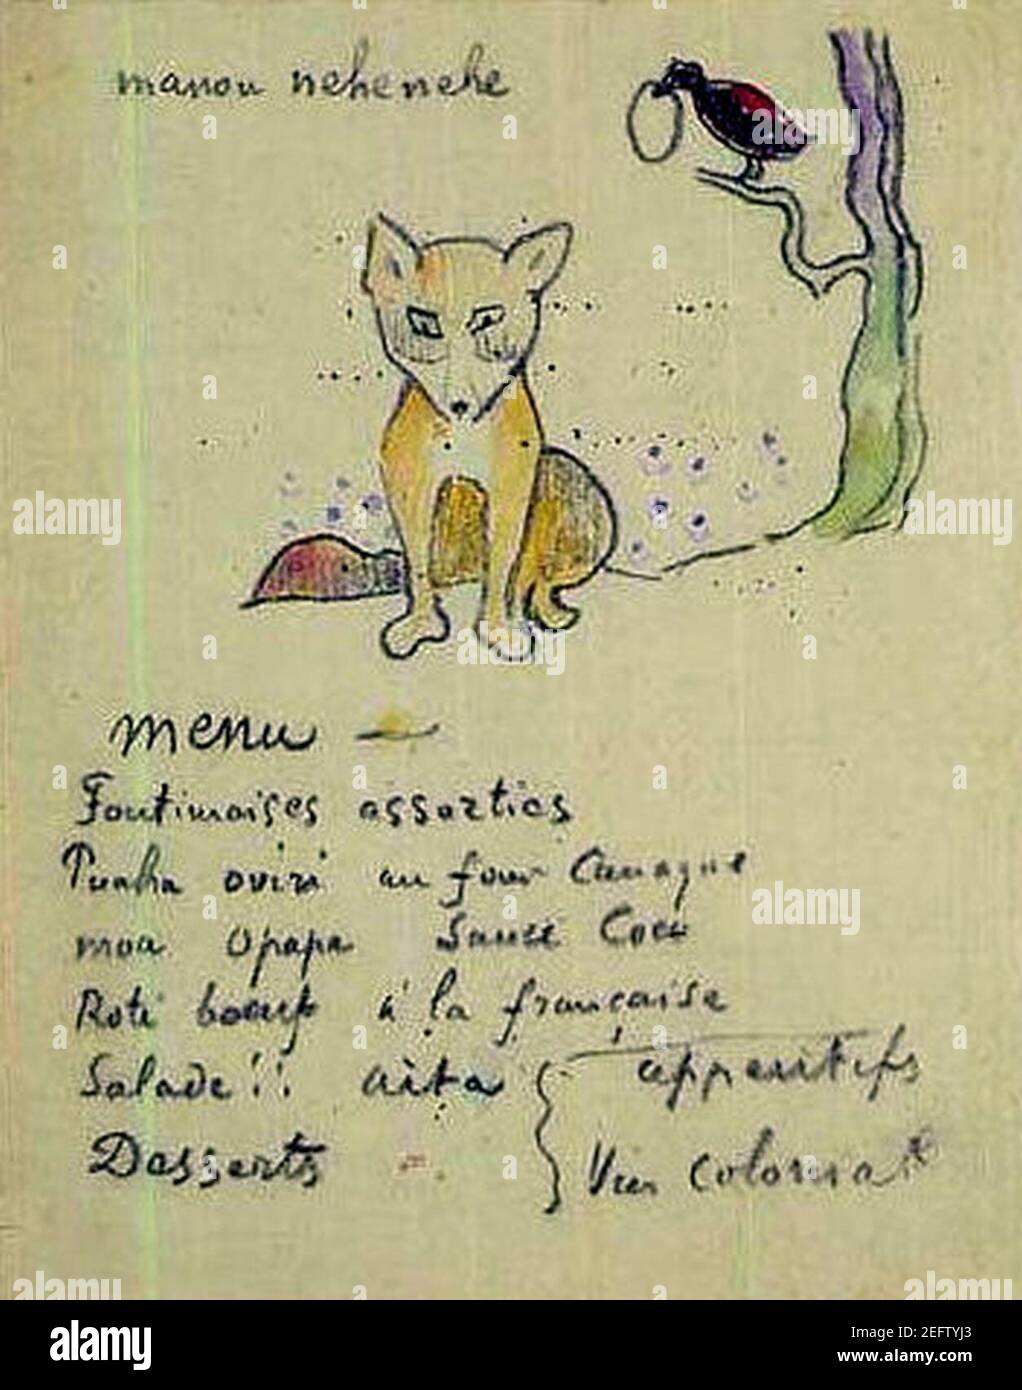 manou nehenehe
menu
Foutimaises assorties
Puaha oviri au four Canaque
moa Opapa Sauce Coco
Roti boeuf à la française
Salade!! aita
apperitifs
Desserts
Vin
alamy
Image ID: 2EFTYJ3
www.alamy.com